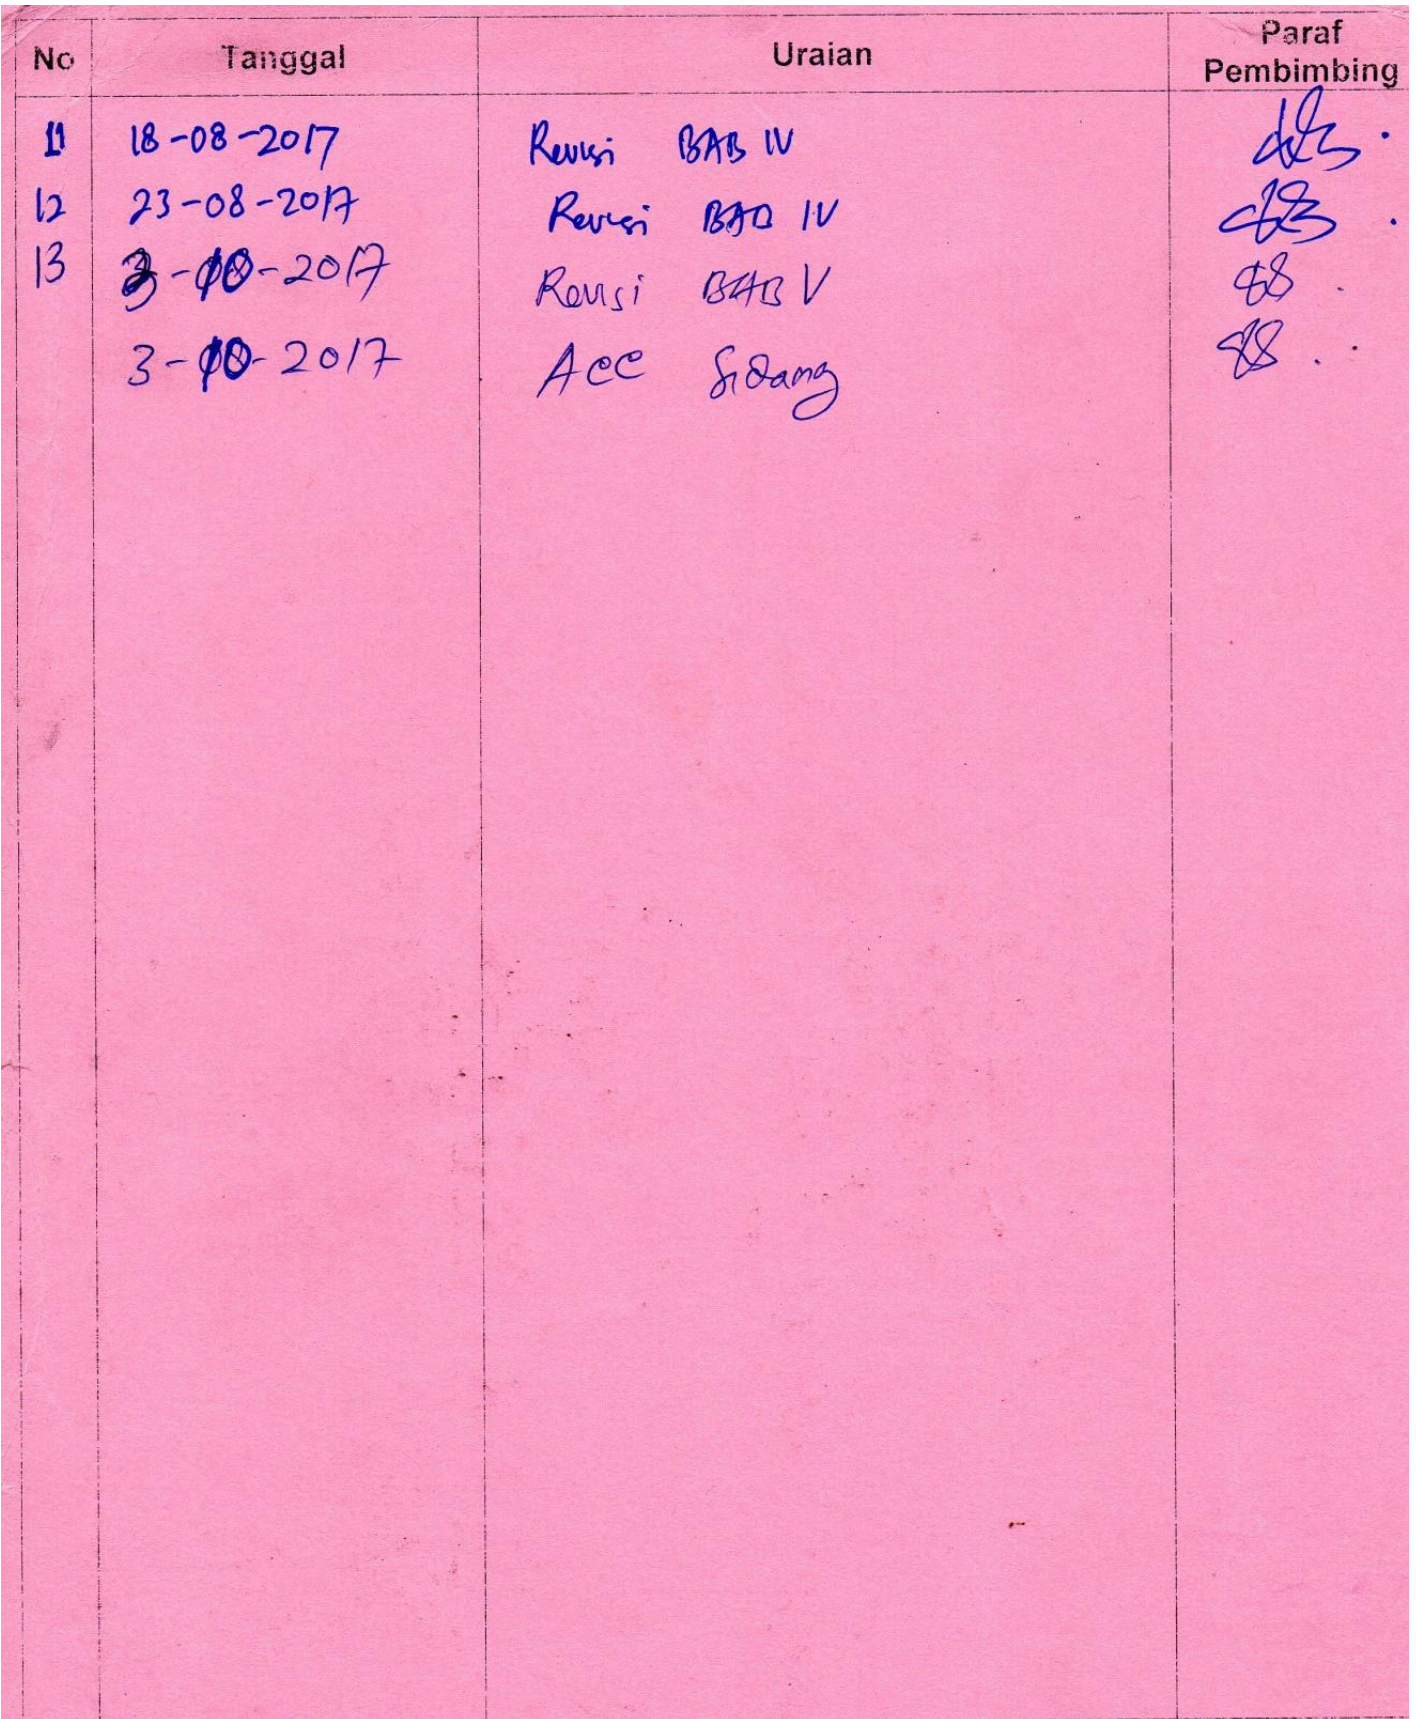 No Tanggal Uraian Paraf Pembimbing
11 18-08-2017 Revisi BAB IV
12 23-08-2017 Revisi BAB IV
13 3-10-2017 Revisi BAB V
3-10-2017 Acc Sidang